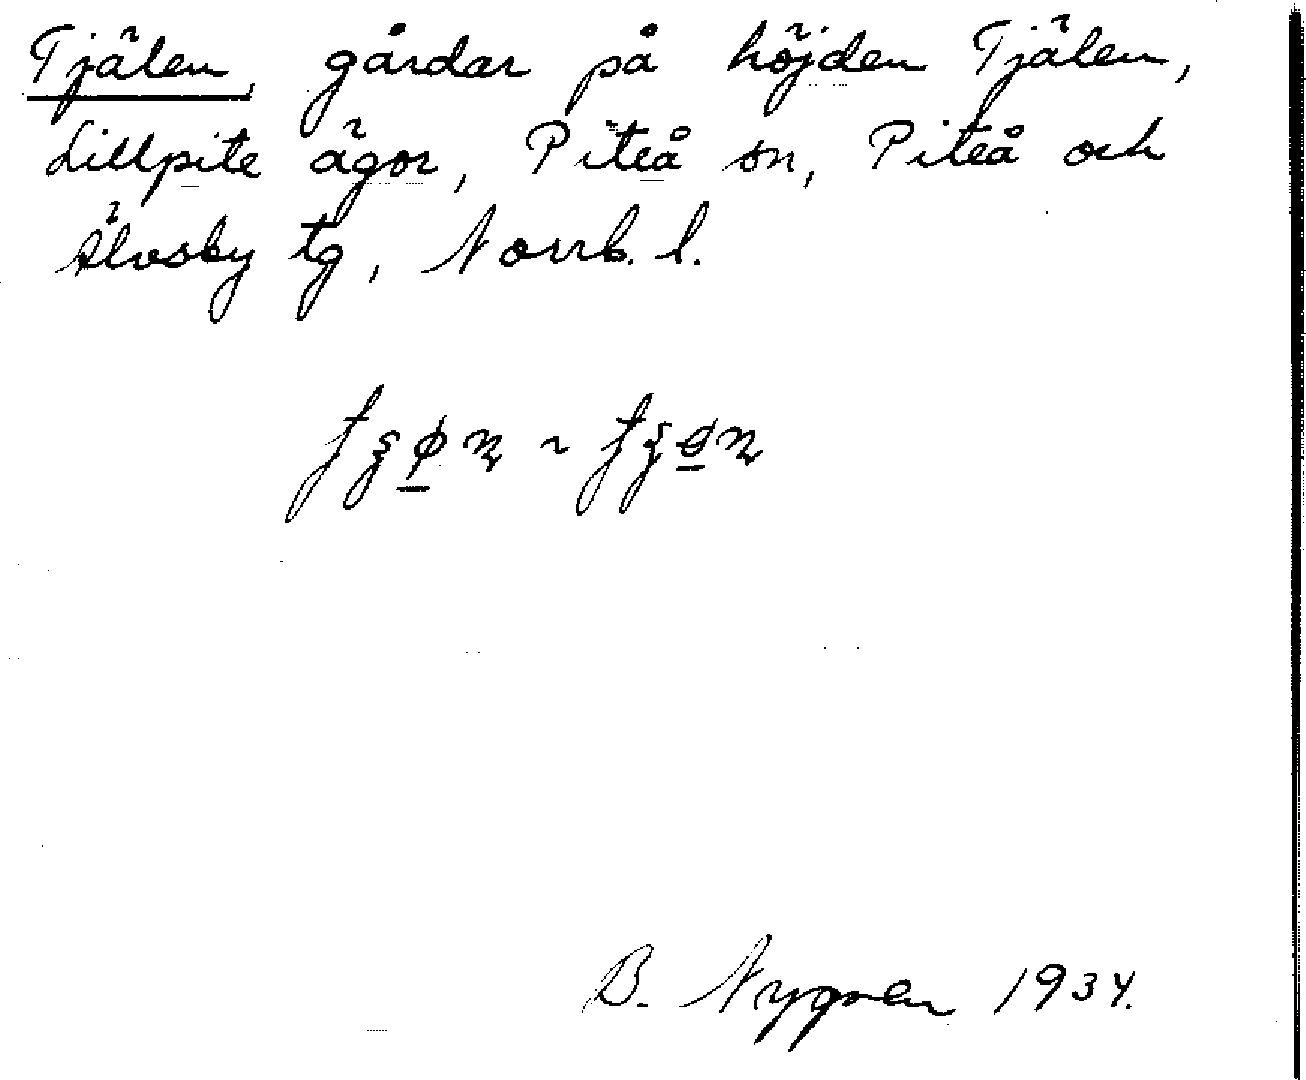 Tjälen, gårdar på höjden Tjälen,
Lillpite ägor, Piteå sn, Piteå och
Älvsby tg, Norrb. l.
B. Nygren 1934.